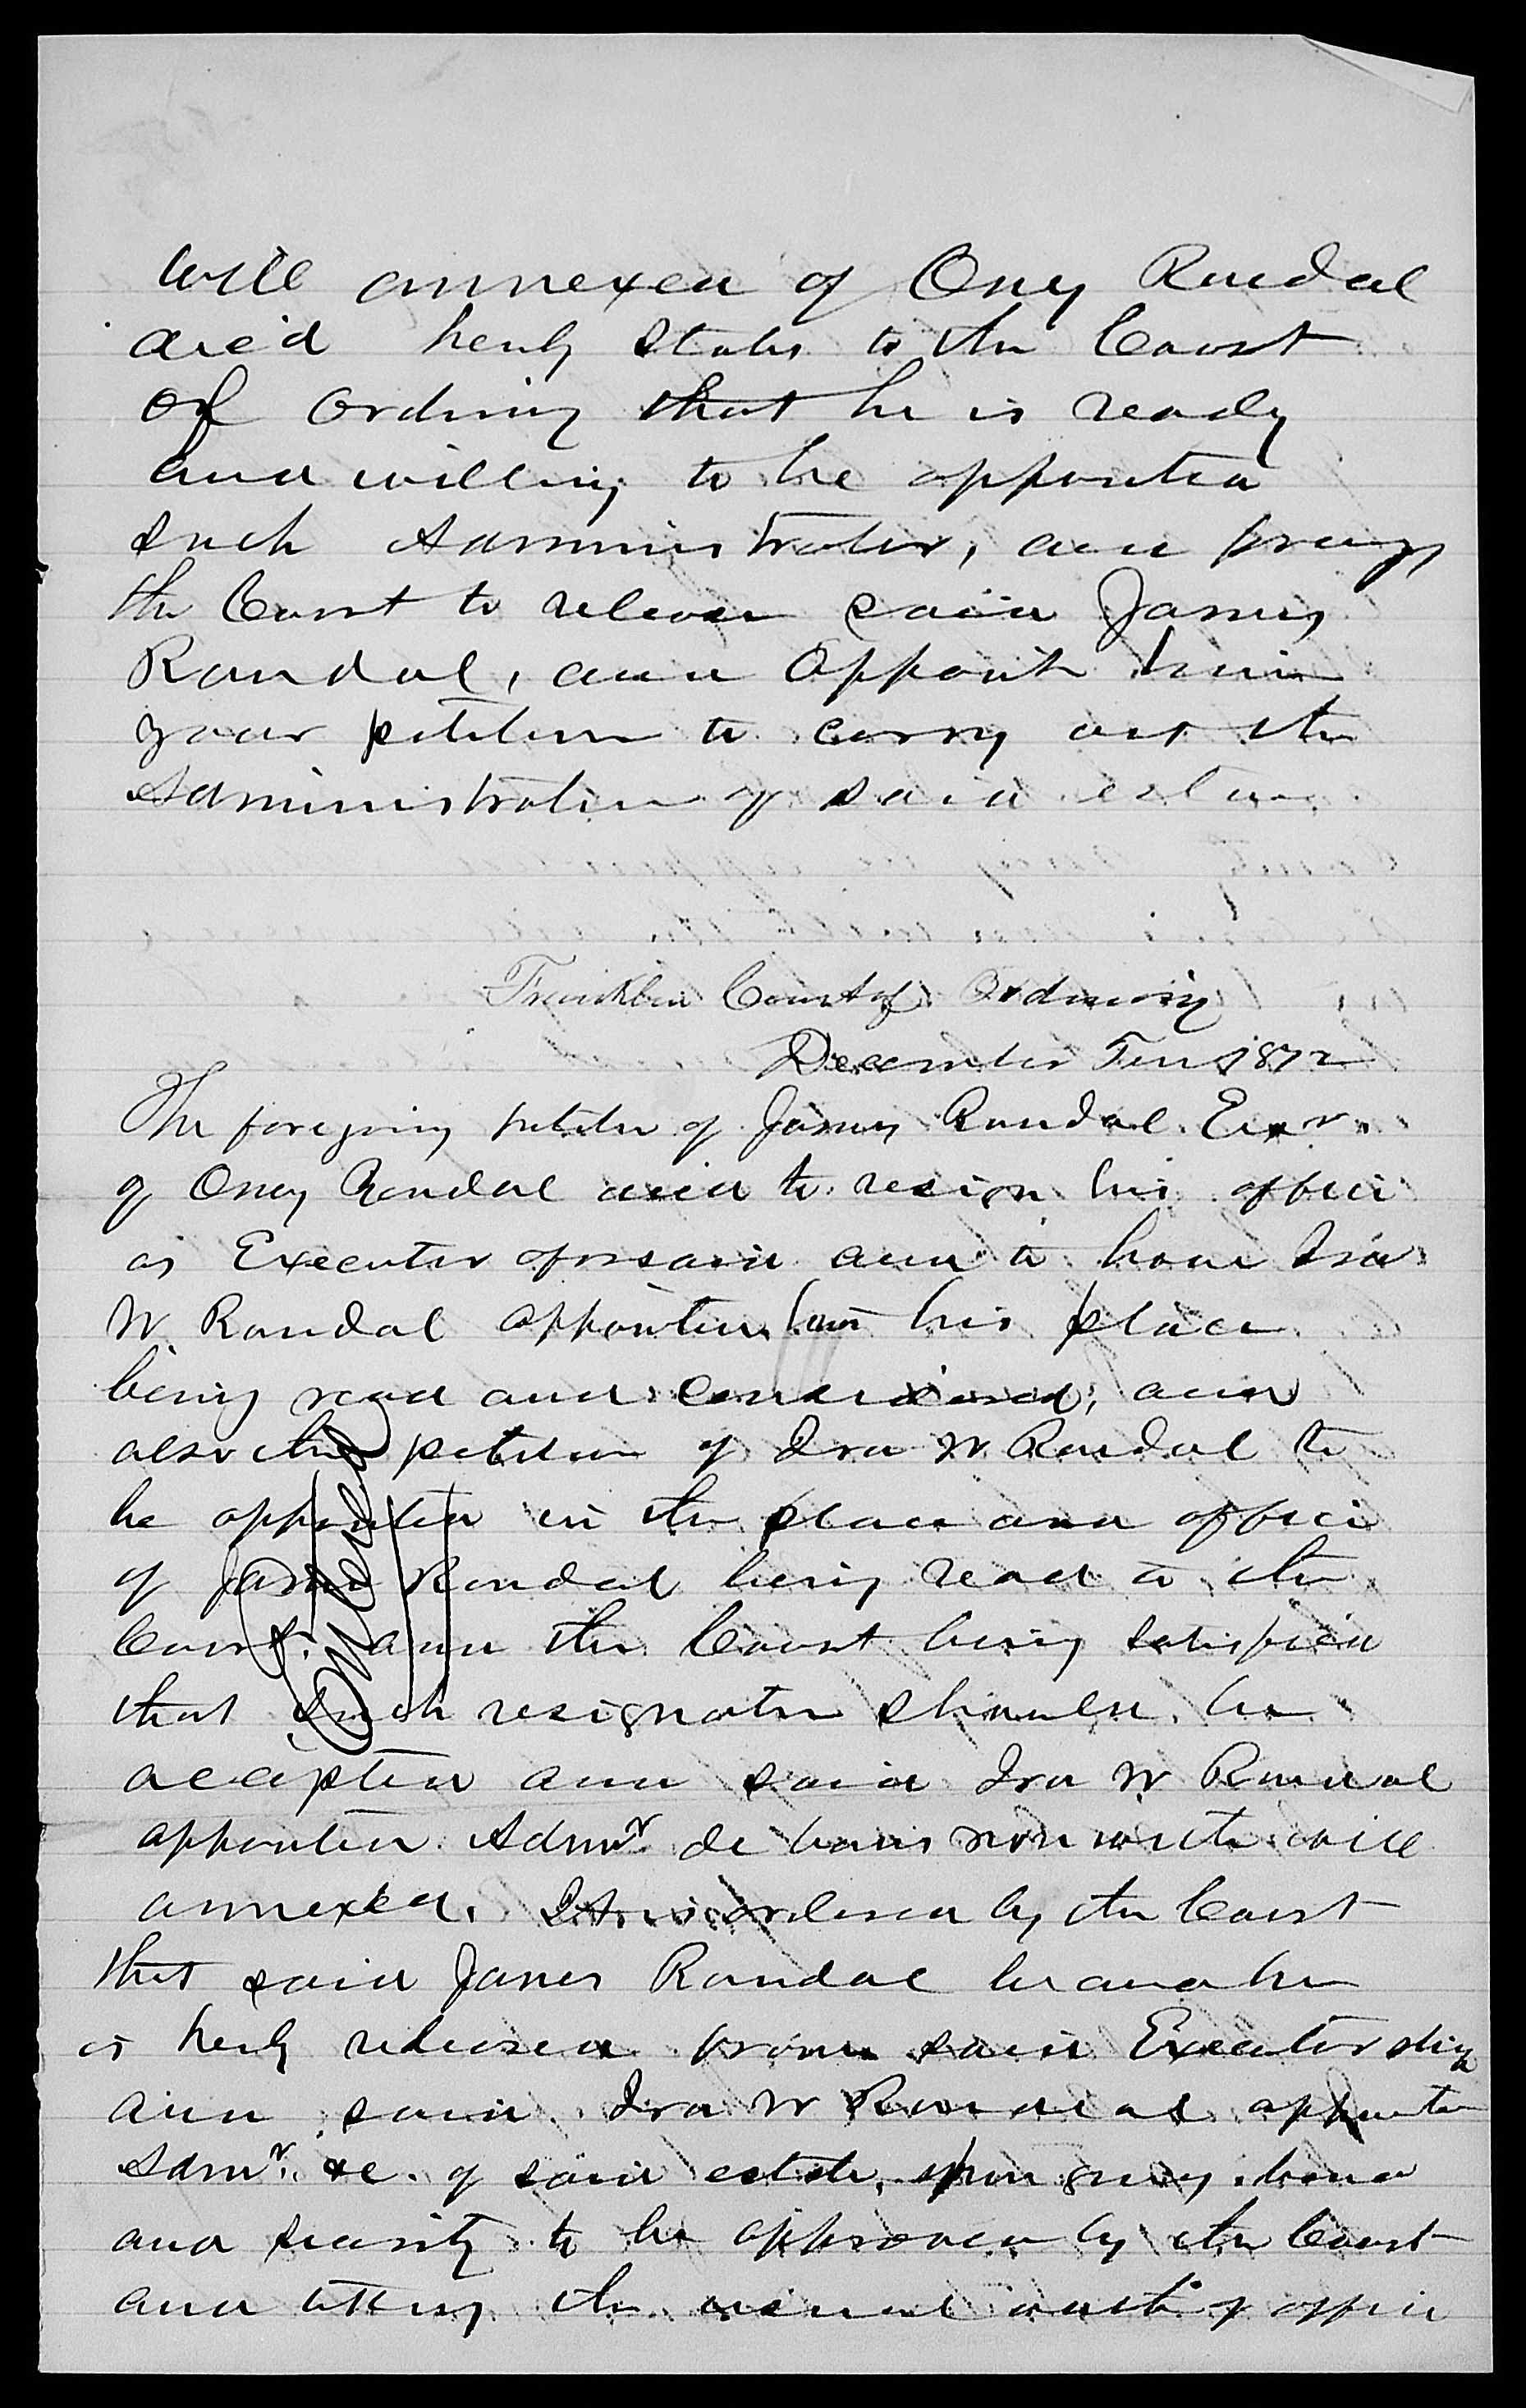 will annexed of Oney Randal
dec'd hereby states to the Court
of Ordinary that he is ready
and willing to be appointed
such Administrator, and prays
the Court to release said James
Randal, and appoint him
your petitioner to carry out the
Administration of said estate.
Franklin Court of Ordinary
December Term 1872
The foregoing petition of James Randal Exr.
of Oney Randal decd to resign his office
as Executor aforesaid and to have Ira
W Randal appointed in his place
being read and considered, and
also the petition of Ira W Randal to
be appointed in the place and office
of James Randal being read to the
Court. and the Court being satisfied
that such resignation should be
accepted and said Ira W Randal
appointed Admr. de bonis non with will
annexed. It is ordered by the Court
that said James Randal be and he
is hereby released from said Executorship
and said Ira W Randal appointed
Admr. &c. of said estate, upon giving bond
and security to be approved by the Court
and taking the usual oath of office